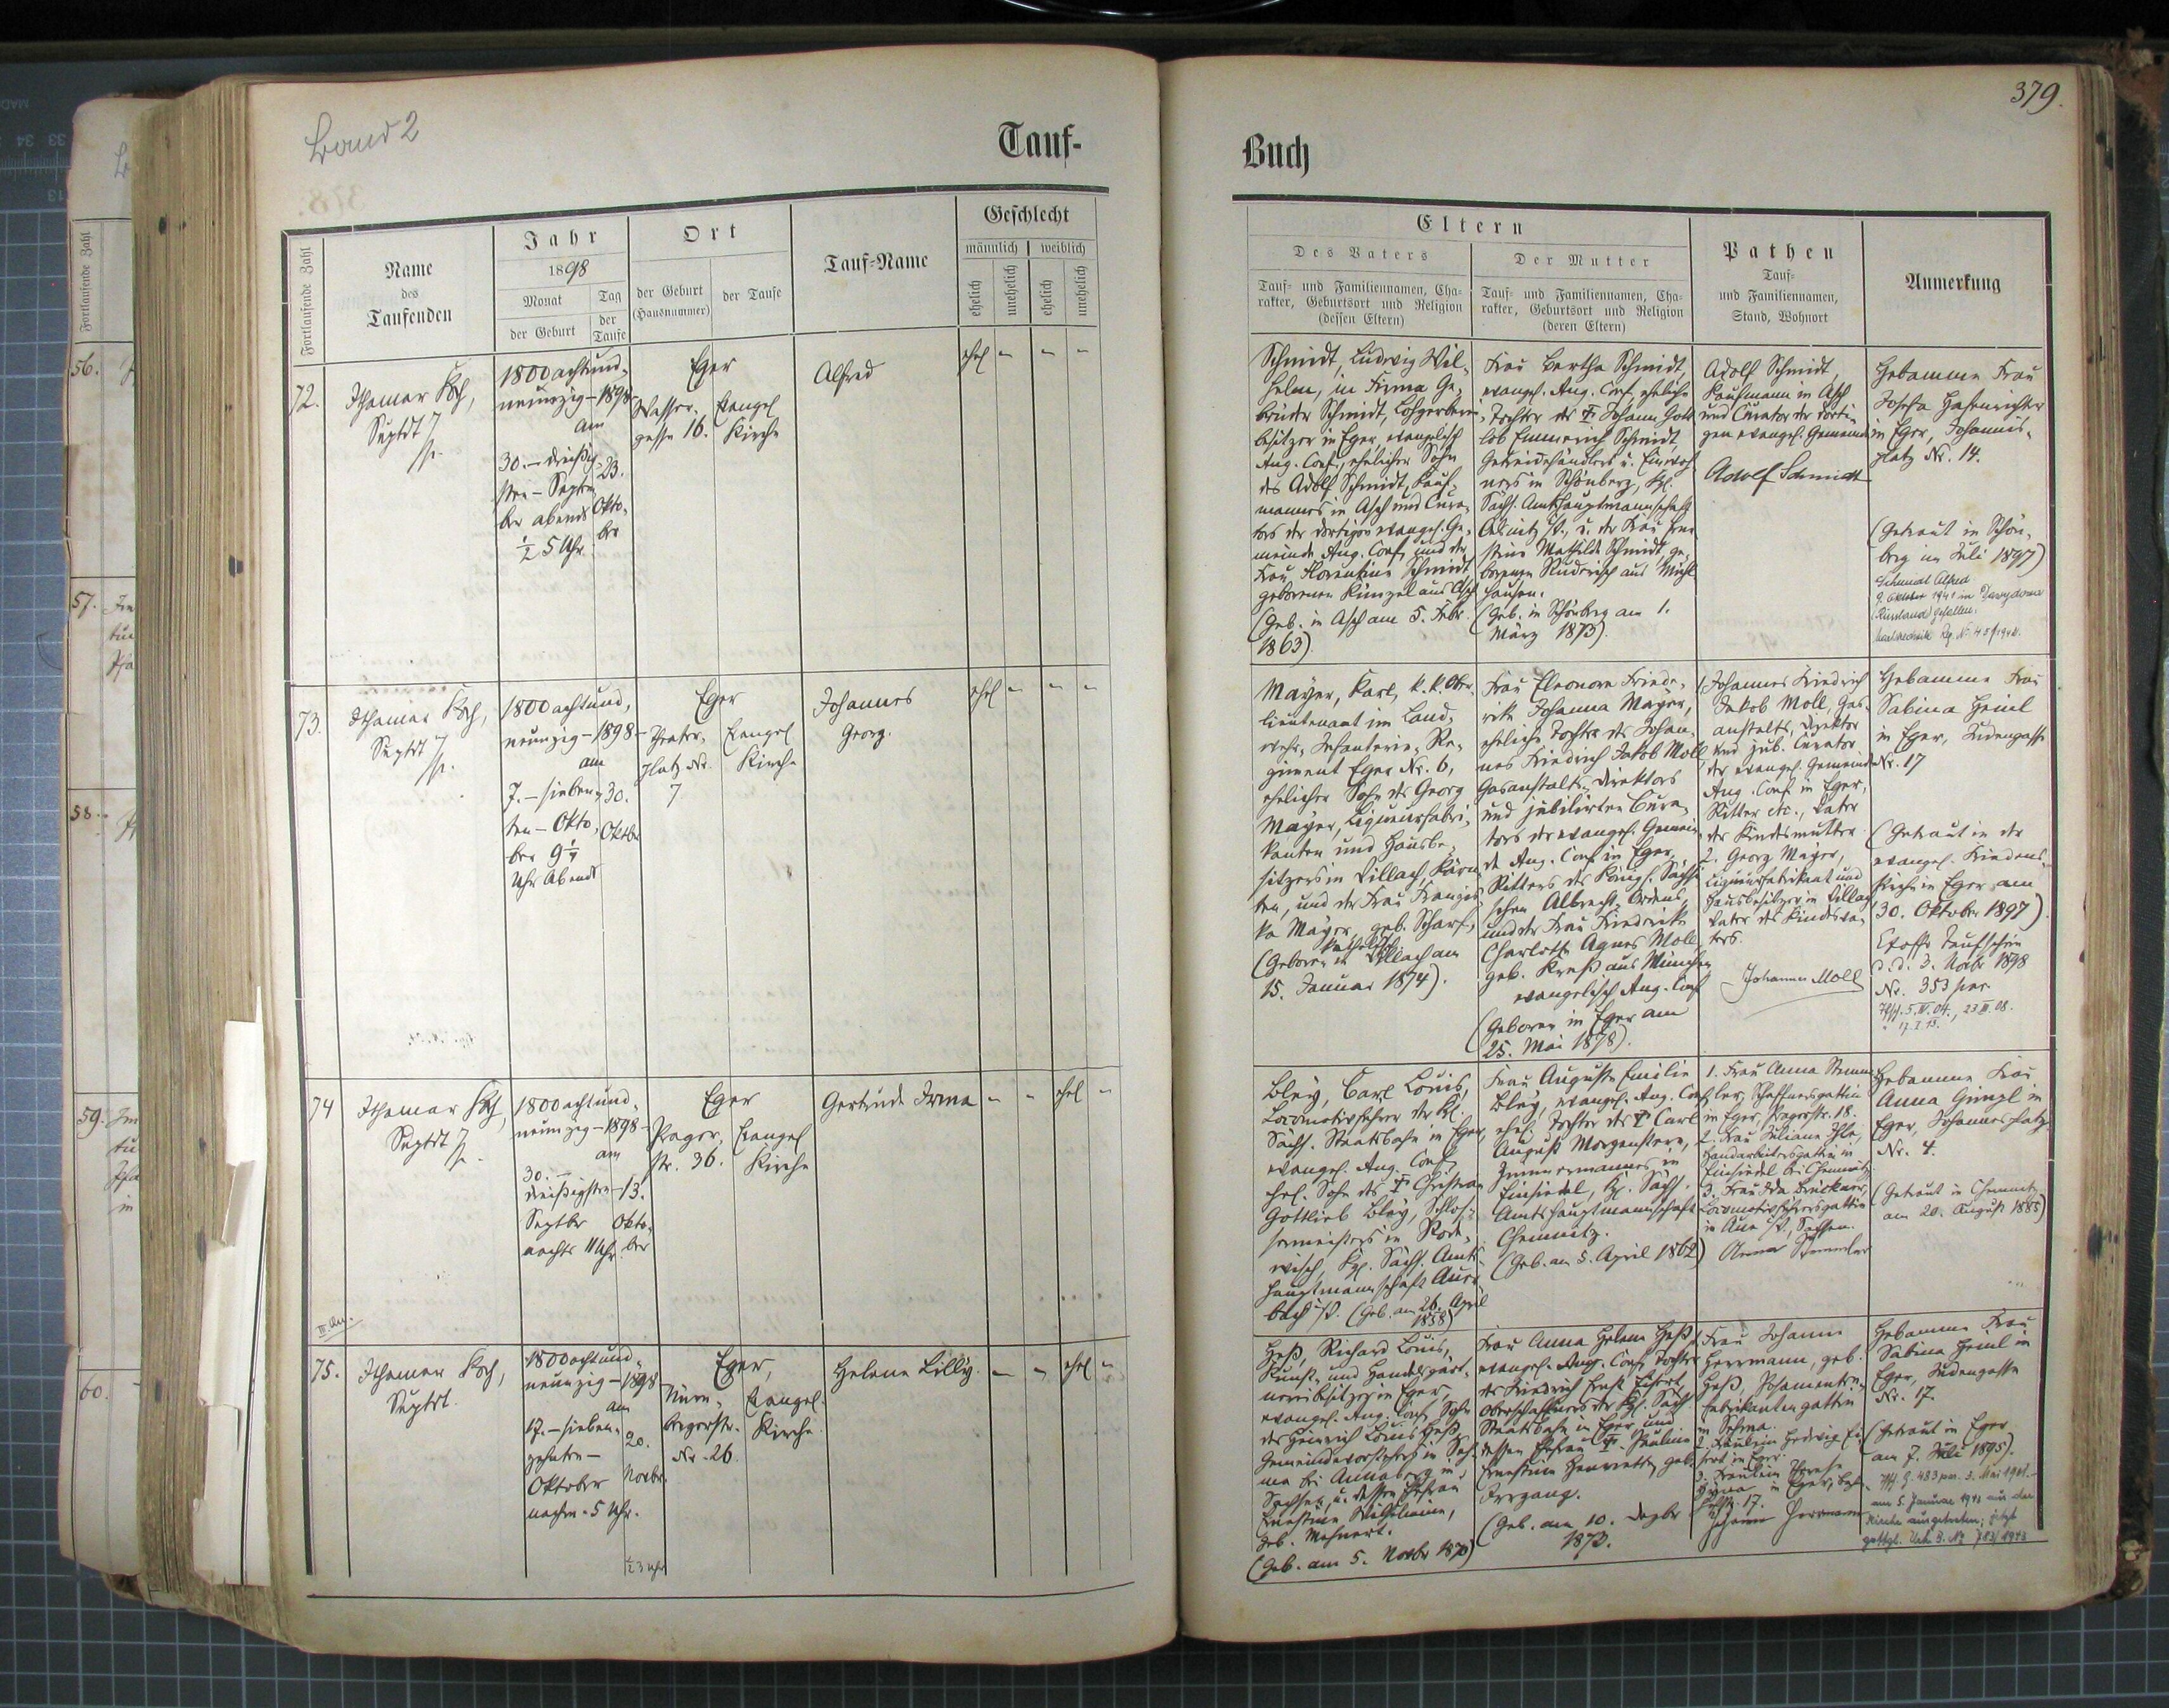 Band 2
379.
Tauf-
Buch
Fortlaufende Zahl
Name
des
Taufenden
Jahr
1898
Monat
der Geburt
Tag
der
Taufe
Ort
der Geburt
(Hausnummer)
der Taufe
Tauf-Name
Geschlecht
männlich
weiblich
ehelich
unehelich
ehelich
unehelich
Eltern
Des Vaters
Tauf- und Familiennamen, Cha-
rakter, Geburtsort und Religion
(dessen Eltern)
Der Mutter
Tauf- und Familiennamen, Cha-
rakter, Geburtsort und Religion
(deren Eltern)
Pathen
Tauf-
und Familiennamen,
Stand, Wohnort
Anmerkung
72.
Ithamar Koch,
1800 achtund-
neunzig - 1898
am
30. - dreißig-
sten - Septem
ber abends
½ 5 Uhr.
23.
Okto-
ber
Eger
Wasser-
gasse 16.
Evangel
Kirche
Alfred
ehel
Schmidt, Ludwig Wil-
helm, in Firma Ge-
brüder Schmidt, Lohgerberei
besitzer in Eger, evangelisch
Aug. Conf., ehelicher Sohn
des Adolf Schmidt, Kauf-
mannes in Asch und Cura-
tors der dortigen evangel. Ge-
meinde Aug. Conf. und der
Frau Florentine Schmidt
geborenen Künzel aus Asch
(Geb. in Asch am 5. Febr.
1863)
Frau Bertha Schmidt,
evangel. Aug. Conf., eheliche
Tochter des † Johann Gott
lob Emmerich Schmidt,
Getreidehändlers u. Einwoh
ners in Schönberg, Kgl.
Sächs. Amtshauptmannschaft
Oelsnitz i/V., u. der Frau Erne
stine Mathilde Schmidt, ge-
borenen
aus Mühl
hausen.
(Geb. in Schönberg am 1.
März 1873).
Adolf Schmidt,
Kaufmann in Asch
und Curator der dorti-
gen evangel. Gemeinde
Adolf Schmidt
Hebamme Frau
Josefa Hasenrichter
in Eger, Johannis-
platz Nr. 14.
(Getraut in Schön-
berg im Juli 1897)
Schmidt Alfred
9. Oktober 1941 in
(Russland) gefallen.
73.
Ithamar Koch,
1800 achtund,
neunzig - 1898
am
7. - sieben-
ten - Okto-
ber 9¼
Uhr Abends
30.
Oktober
Eger
Theater-
platz Nr.
7
Evangel
Kirche
Johannes
Georg.
ehel
Mayer, Karl, k. k. Ober-
lieutenant im Land-
wehr-Infanterie-Re-
giment Eger Nr. 6,
ehelicher Sohn des Georg
Mayer, Liqueurfabri-
kanten und Hausbe-
sitzers in Villach, Kärn
ten, und der Frau Franzis
ka Mayer, geb. Scharf,
katholisch
(Geboren in Villach am
15. Januar 1874).
Frau Eleonora Friede-
rike Johanna Mayer,
eheliche Tochter des Johan-
nes Friedrich Jakob Moll
Gasanstalts-Direktors
und jubilirten Cura-
tors der evangel. Gemein
de Aug. Conf. in Eger,
Ritters des Königl. Sächsi
schen Albrecht-Ordens,
und der Frau Friederike
Charlotte Agnes Moll,
geb. Kreß aus München
evangelisch Aug. Conf
(Geboren in Eger am
25. Mai 1878).
1. Johannes Friedrich
Jakob Moll, Gas-
anstalts-Direktor
und jub. Curator
der evangel. Gemeinde
Aug. Conf. in Eger,
Ritter etc., Vater
der Kindesmutter.
2. Georg Mayer,
Liqueurfabrikant und
Hausbesitzer in Villach
Vater des Kindesva-
ters.
Johannes Moll
Hebamme Frau
Sabina Heinl
in Eger, Judengasse
Nr. 17
(Getraut in der
evangel. Friedens-
kirche in Eger am
30. Oktober 1897).
Taufschein
d. d. 3. Novbr 1898
Nr. 353
5. IV. 04., 23 III. 08.
17. I. 15.
74
Ithamar Koch,
1800 achtund-
neunzig - 1898
am
30. -
dreißigsten
Septbr
nachts 11 Uhr.
13.
Okto-
ber
Eger
Prager-
str. 36.
Evangel
Kirche
Gertrude Irma
ehel
Bley, Carl Louis,
Locomotivführer der Kgl.
Sächs. Staatsbahn in Eger,
evangel. Aug. Conf.,
ehel. Sohn des † Christian
Gottlieb Bley, Schlos-
sermeisters in Rode-
wisch, Kgl. Sächs. Amts
hauptmannschaft Auer
bach i/V. (Geb. am 26. April
1858)
Frau Auguste Emilie
Bley, evangel. Aug. Conf.,
ehel. Tochter des † Carl
August Morgenstern,
Zimmermannes in
Einsiedel, Kgl. Sächs.
Amtshauptmannschaft
Chemnitz.
(Geb. am 5. April 1862)
1. Frau Anna Stemm
ler, Schaffnersgattin
in Eger, Pragerstr. 18.
2. Frau Juliane Ihle,
Handarbeitersgattin in
Einsiedel bei Chemnitz.
3. Frau Ida Brückner,
Locomotivführersgattin
in Aue i/S., Sachsen.
Anna Stemmler
Hebamme Frau
Anna Gimpl in
Eger, Johannesplatz
Nr. 4.
(Getraut in Chemnitz
am 20. August 1885)
75.
Ithamar Koch,
1800 achtund-
neunzig - 1898
am
17. - sieben-
zehnten -
Oktober
nachm. 5 Uhr.
20.
Novbr.
½3 Uhr
Eger,
Nürn-
bergerstr.
Nr. 26.
Evangel.
Kirche
Helene Lilly.
ehel
Heß, Richard Louis,
Kunst- und Handelsgärt-
nereibesitzer in Eger,
evangel. Aug. Conf., Sohn
des Heinrich Louis Heß,
Gemeindevorstehers in Seh-
ma bei Annaberg in
Sachsen, u. dessen Ehefrau
Ernestine Wilhelmine,
geb. Mehnert.
(Geb. am 5. Novbr 1870)
Frau Anna Helene Heß
evangel. Aug. Conf., Tochter
des Friedrich Ernst
Oberschaffners der Kgl. Säch
Staatsbahn in Eger und
dessen Ehefrau † Pauline
Ernestine Henriette, geb.
Irrgang.
(Geb. am 10. Dezbr
1873.
1. Frau Johanne
Herrmann, geb.
Heß, Posamenten-
fabrikantengattin
in Sehma.
2. Fräulein Hedwig
in Eger.
3. Fräulein Therese
in Eger,
17.
Herrmann
Hebamme Frau
Sabina Heinl in
Eger, Judengasse
Nr. 17.
(Getraut in Eger
am 7. Juli 1895).
am 5. Januar 1941 aus der
Kirche ausgetreten; jetzt
56.
57.
58.
59.
60.